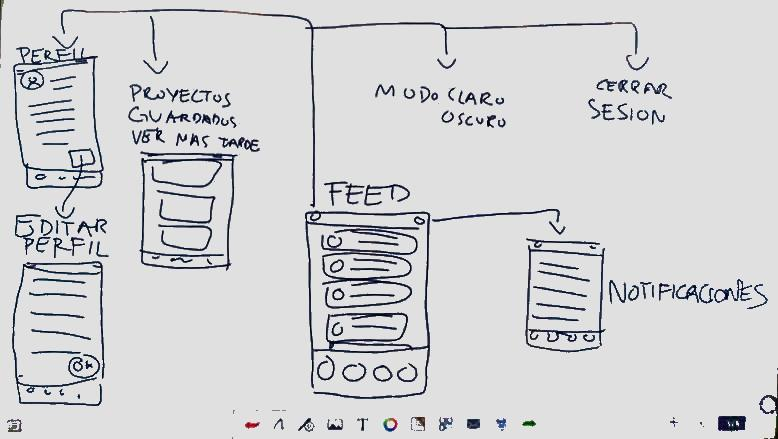 PERFIL
PROYECTOS
GUARDADOS
VER MAS TARDE
MODO CLARO
OSCURO
CERRAR
SESION
EDITAR
PERFIL
OK
FEED
NOTIFICACIONES
T